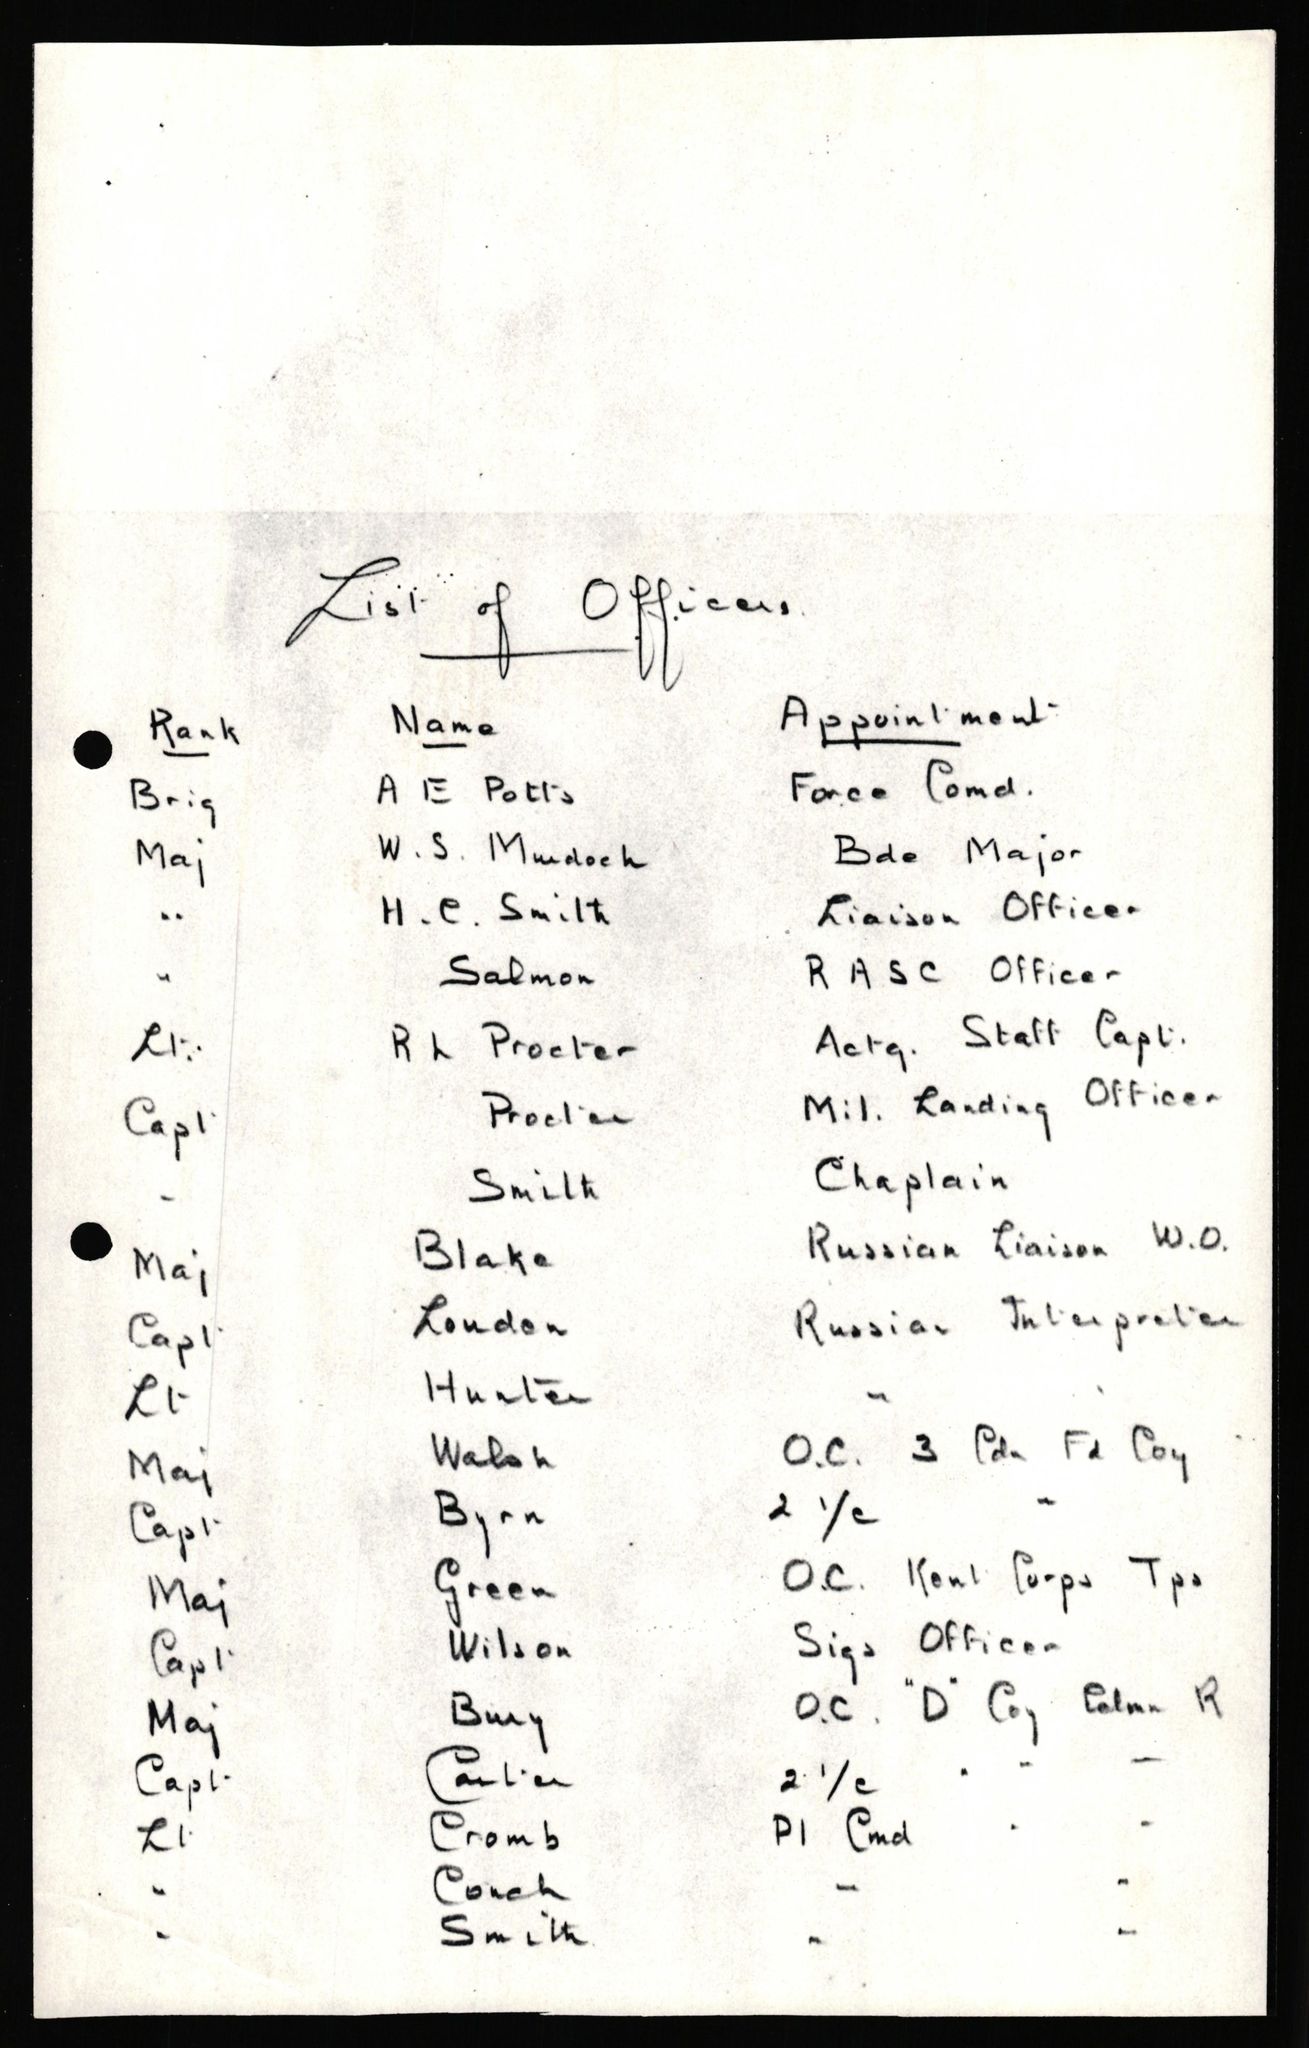 List of Officers.
Rank Name Appointment
Brig A E Potts Force Comd.
Maj W.S. Murdoch Bde Major
" H.C. Smith Liaison Officer
" Salmon R A S C Officer
Lt. R L Procter Actg. Staff Capt.
Capt Procter Mil. Landing Officer
" Smith Chaplain
Maj Blake Russian Liaison W.O.
Capt Loudon Russian Interpreter
Lt Hunter " "
Maj Walsh O.C. 3 Cdn Fd Coy
Capt Byrn 2 i/c "
Maj Green O.C. Kent Corps Tps
Capt Wilson Sigs Officer
Maj Bury O.C. "D" Coy Edmn R
Capt Cartier 2 i/c " " "
Lt Cromb Pl Cmd " "
" Couch " "
" Smith " "